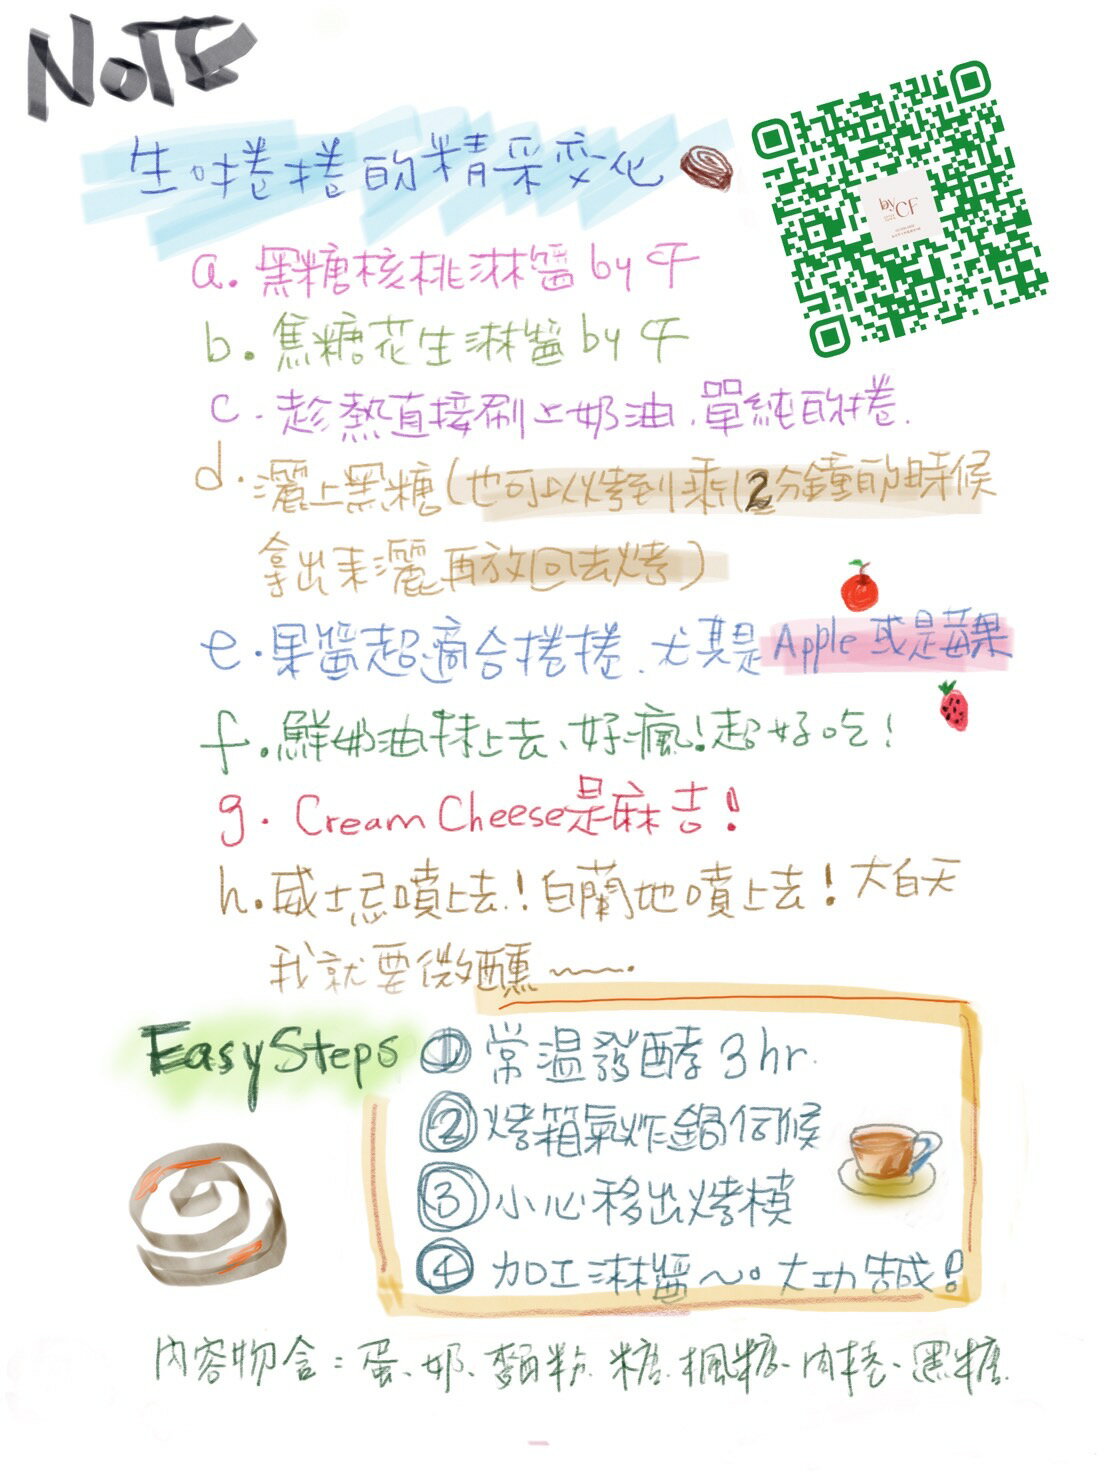 NOTE
生味捲捲的精采變化
by CF
a. 黑糖核桃淋醬 by CF
b. 焦糖花生淋醬 by CF
c. 趁熱直接刷上奶油,單純的捲.
d. 灑上黑糖(也可以烤到剩12分鐘的時候
拿出來灑再放回去烤)
e. 果醬超適合捲捲、尤其是Apple或是莓果
f. 鮮奶油抹上去、好瘋!超好吃!
g. Cream Cheese是麻吉!
h. 威士忌噴上去!白蘭地噴上去!大白天
我就要微醺~~.
Easy Steps
① 常溫發酵 3hr.
② 烤箱氣炸鍋伺候
③ 小心移出烤模
④ 加工淋醬~。大功告成!
內容物含:蛋、奶、麵粉、糖、楓糖、肉桂、黑糖.